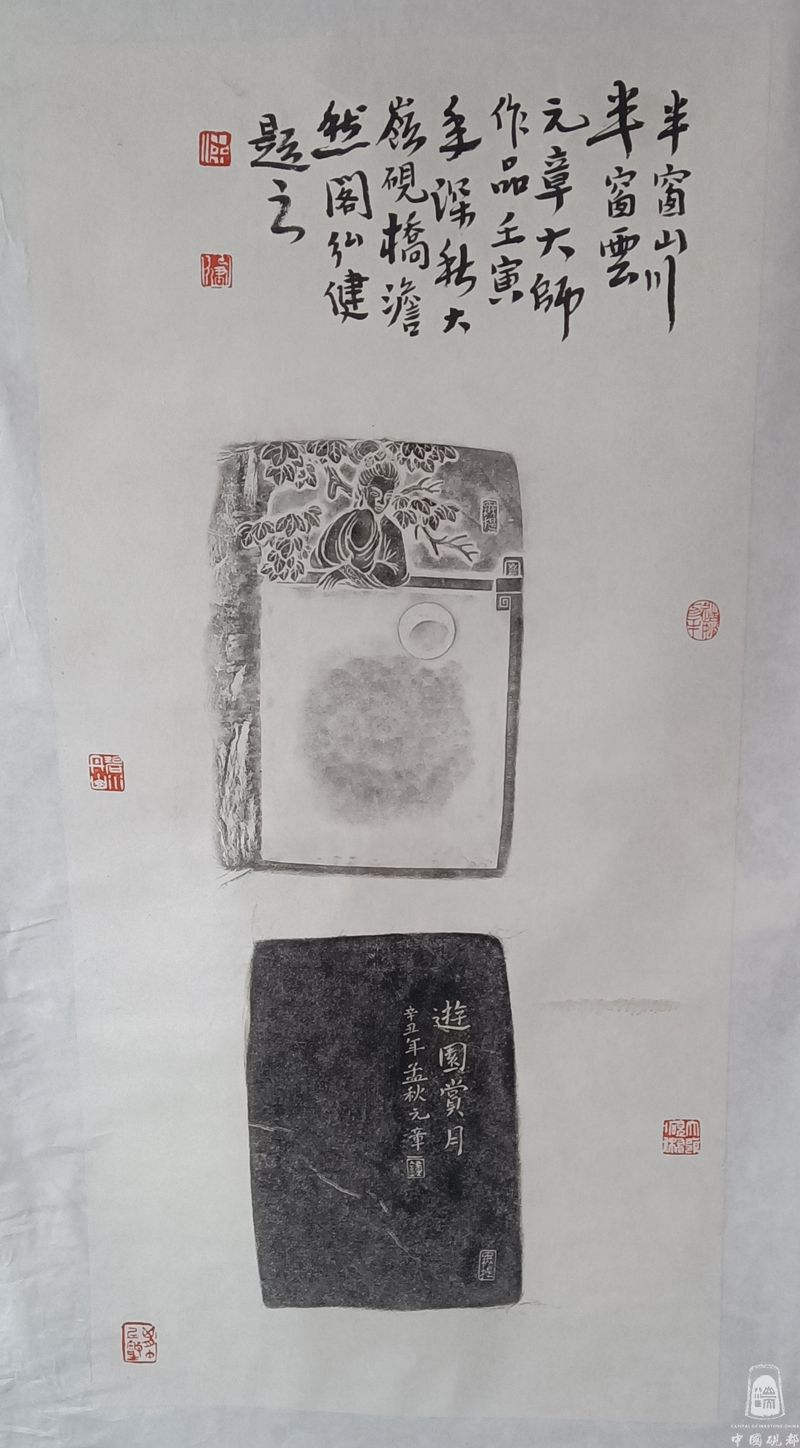 半窗山川
半窗雲
元章大師
作品壬寅
年深秋大
嶺硯橋澹
然閣弘健
題之
遊園賞月
辛丑年孟秋元章
CAPITAL OF INKSTONE,CHINA
中國硯都